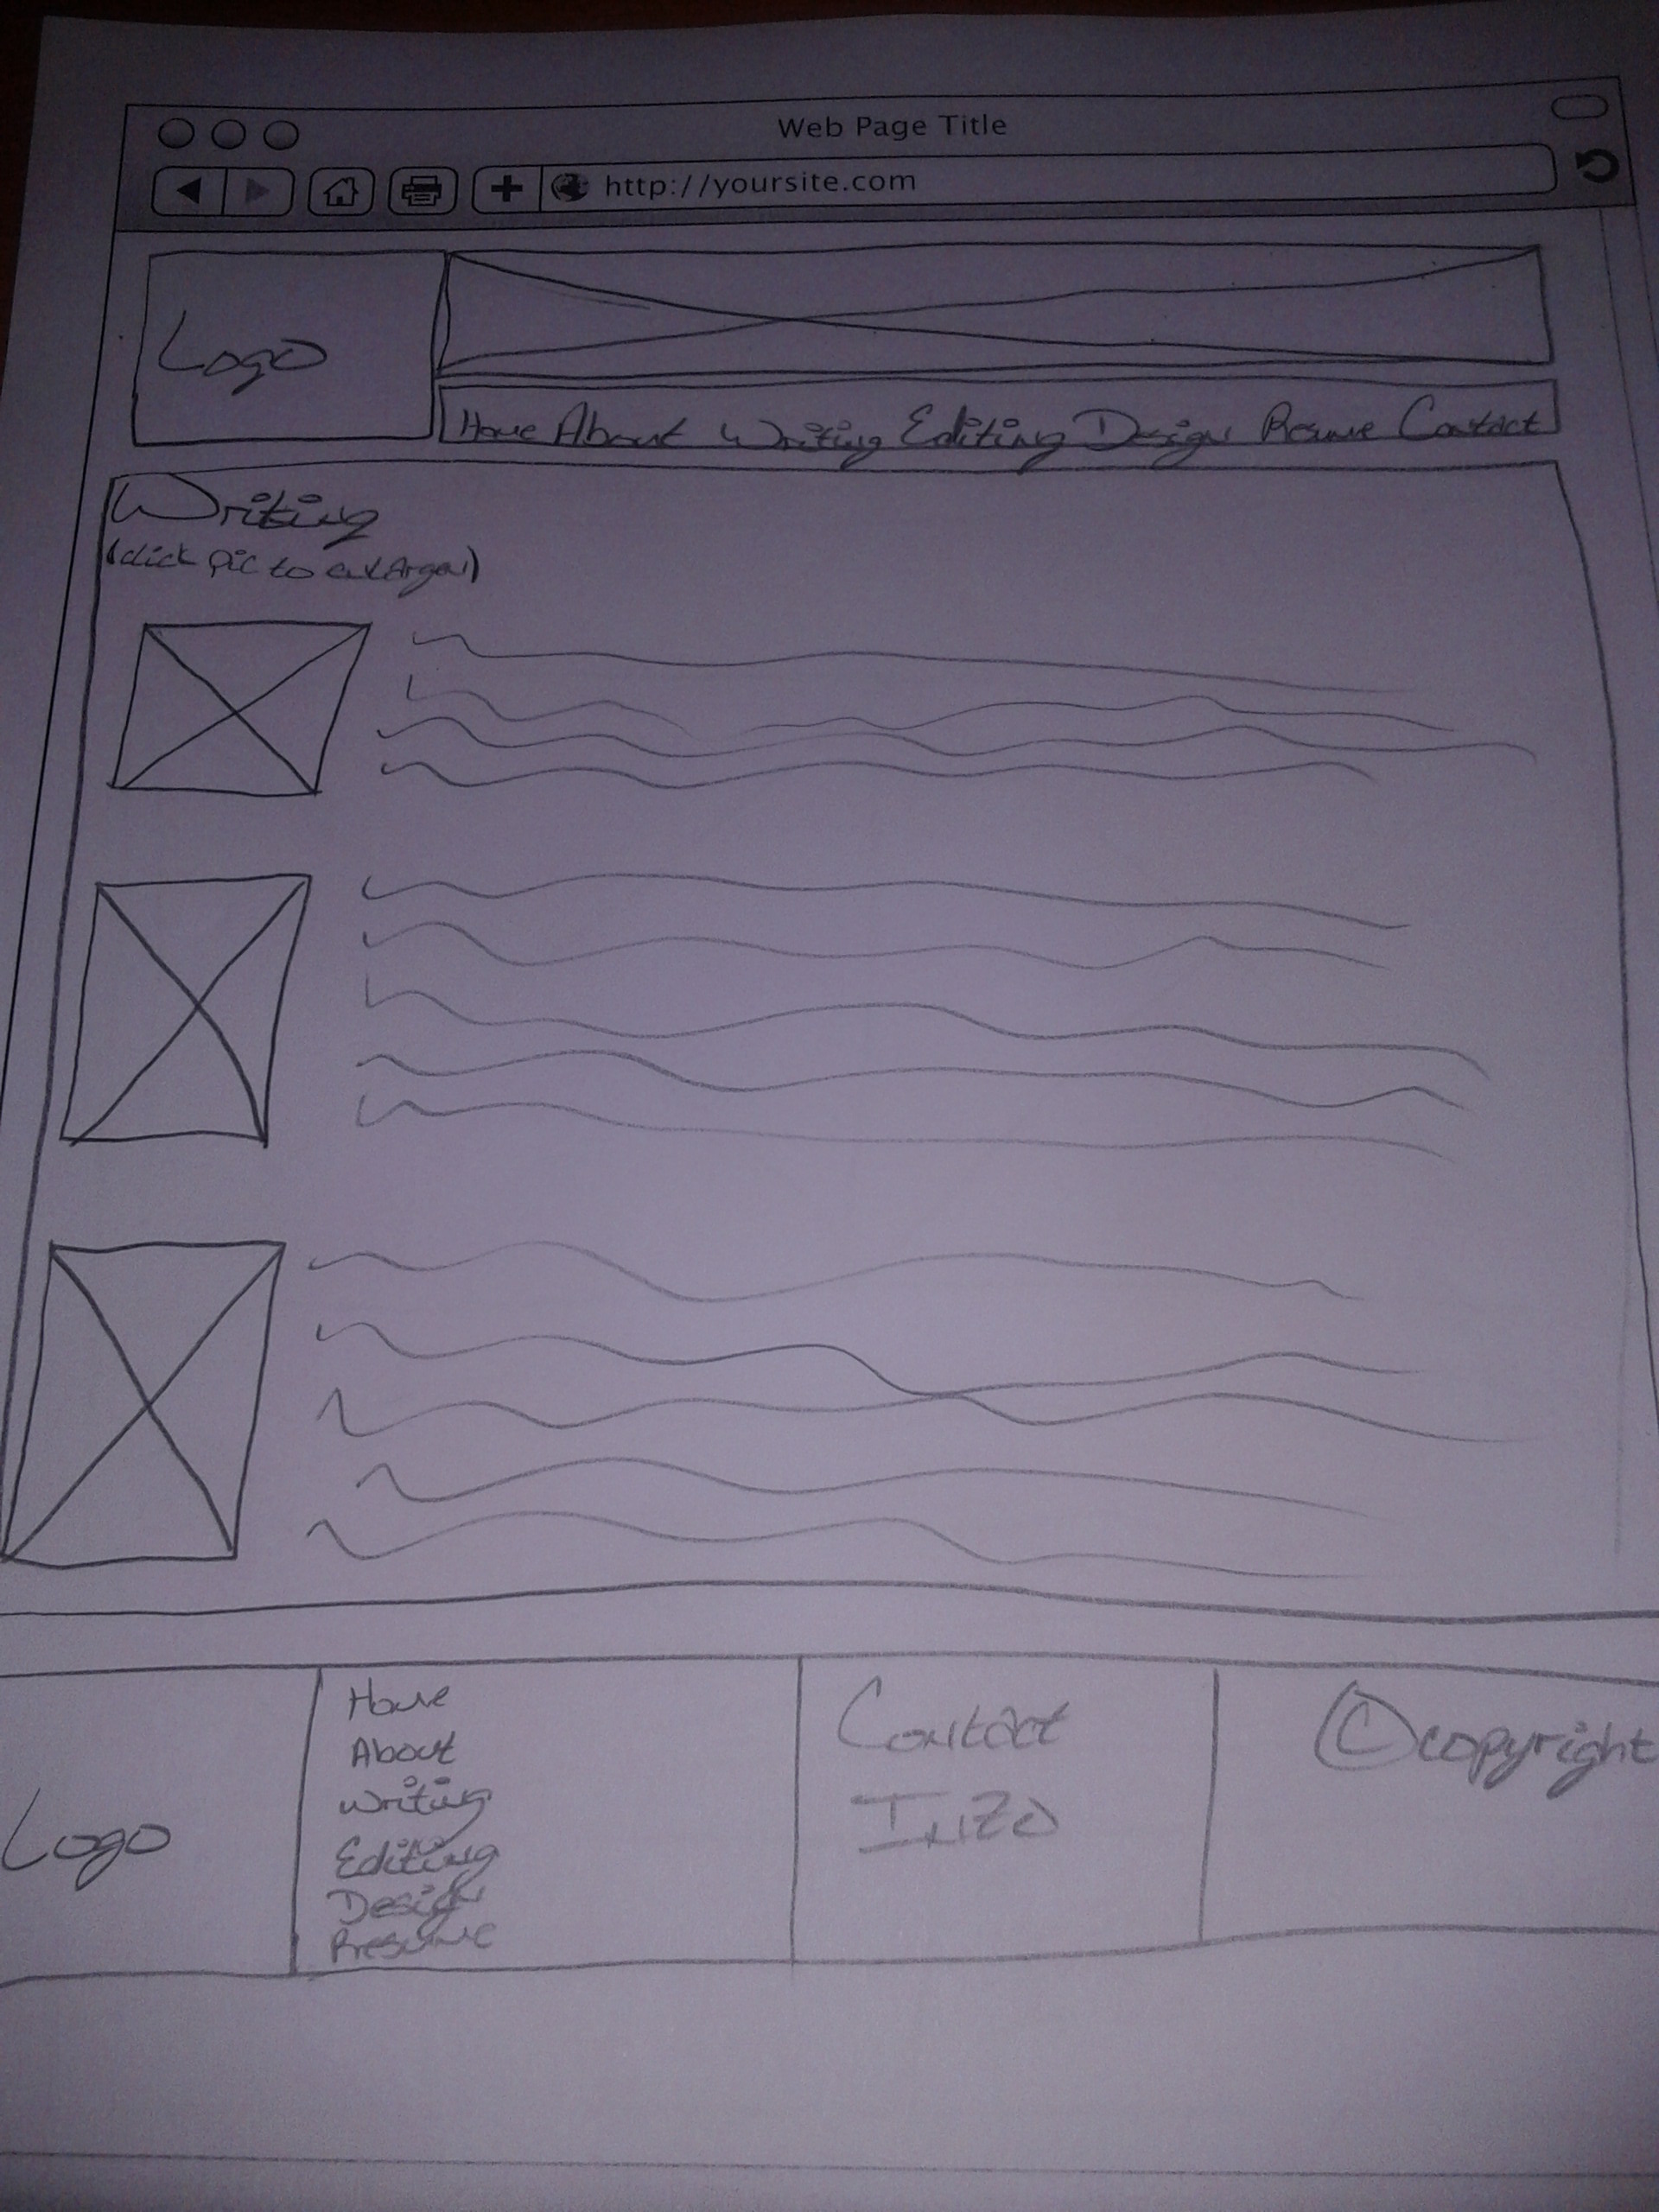 Web Page Title
http://yoursite.com
Logo
Home About Writing Editing Design Resume Contact
Writing
(click pic to enlarge)
Home
About
Writing
Editing
Design
Resume
Logo
Contact
Info
©copyright